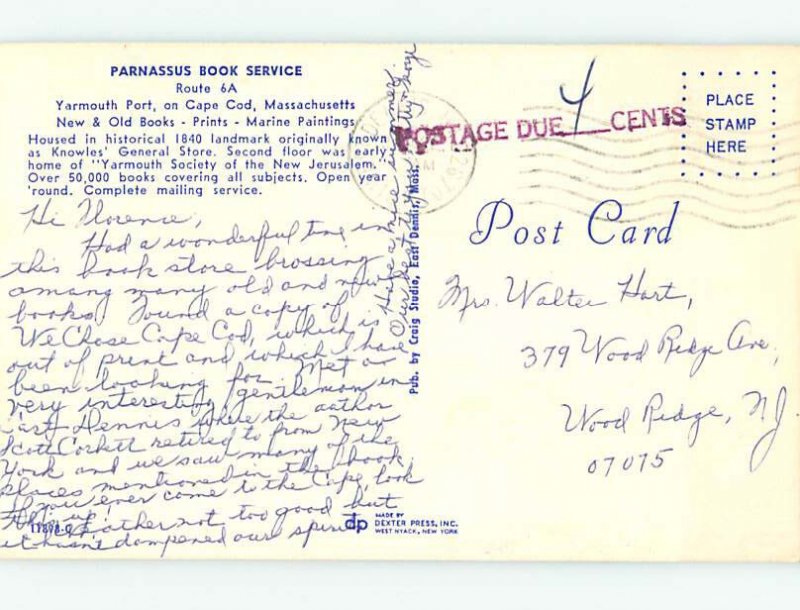 PARNASSUS BOOK SERVICE
Route 6A
Yarmouth Port, on Cape Cod, Massachusetts
New & Old Books - Prints - Marine Paintings
Housed in historical 1840 landmark originally known
as Knowles' General Store. Second floor was early
home of "Yarmouth Society of the New Jerusalem."
Over 50,000 books covering all subjects. Open year
'round. Complete mailing service.
Hi Florence,
Had a wonderful time in
this book store brossing
amang many old and new
books. Found a copy of
We Chose Cape Cod, which is
out of print and which I have
been looking for. Met a
very interesting gentleman in
East Dennis where the author
Scott Corbett retired to from New
York and we saw many of the
places mentioned in the book.
If you ever come to the Cape, look
this up. Weather not too good but
it hasn't dampened our spirits.
Have a nice summer.
Our best to you
11878-C
Pub. by Craig Studio, East Dennis, Mass.
dp
MADE BY
DEXTER PRESS, INC.
WEST NYACK, NEW YORK
POSTAGE DUE 4 CENTS
PLACE
STAMP
HERE
Post Card
Mrs. Walter Hart,
379 Wood Ridge Ave,
Wood Ridge, N.J.
07075